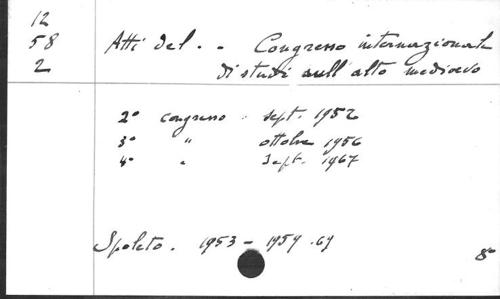 12
58 Atti del . . Congresso internazionale
2 di studi sull'alto medioevo
2° congresso . sept. 1952
3° " ottobre 1956
4° " Sept. 1967
Spoleto. 1953 - 1959 . 67
8°